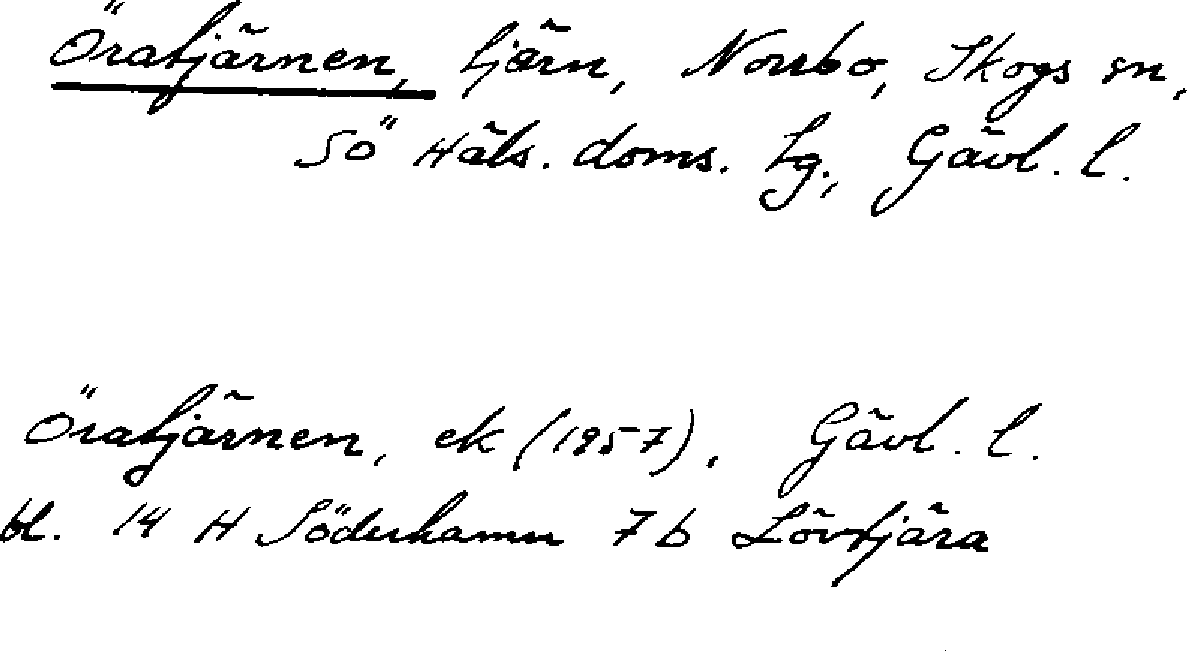 Öratjärnen, tjärn, Norrbo, Skogs sn,
Sö Häls. doms. tg., Gävl. l.
Öratjärnen, ek (1957), Gävl. l.
bl. 14 H Söderhamn 7 b Lövtjära